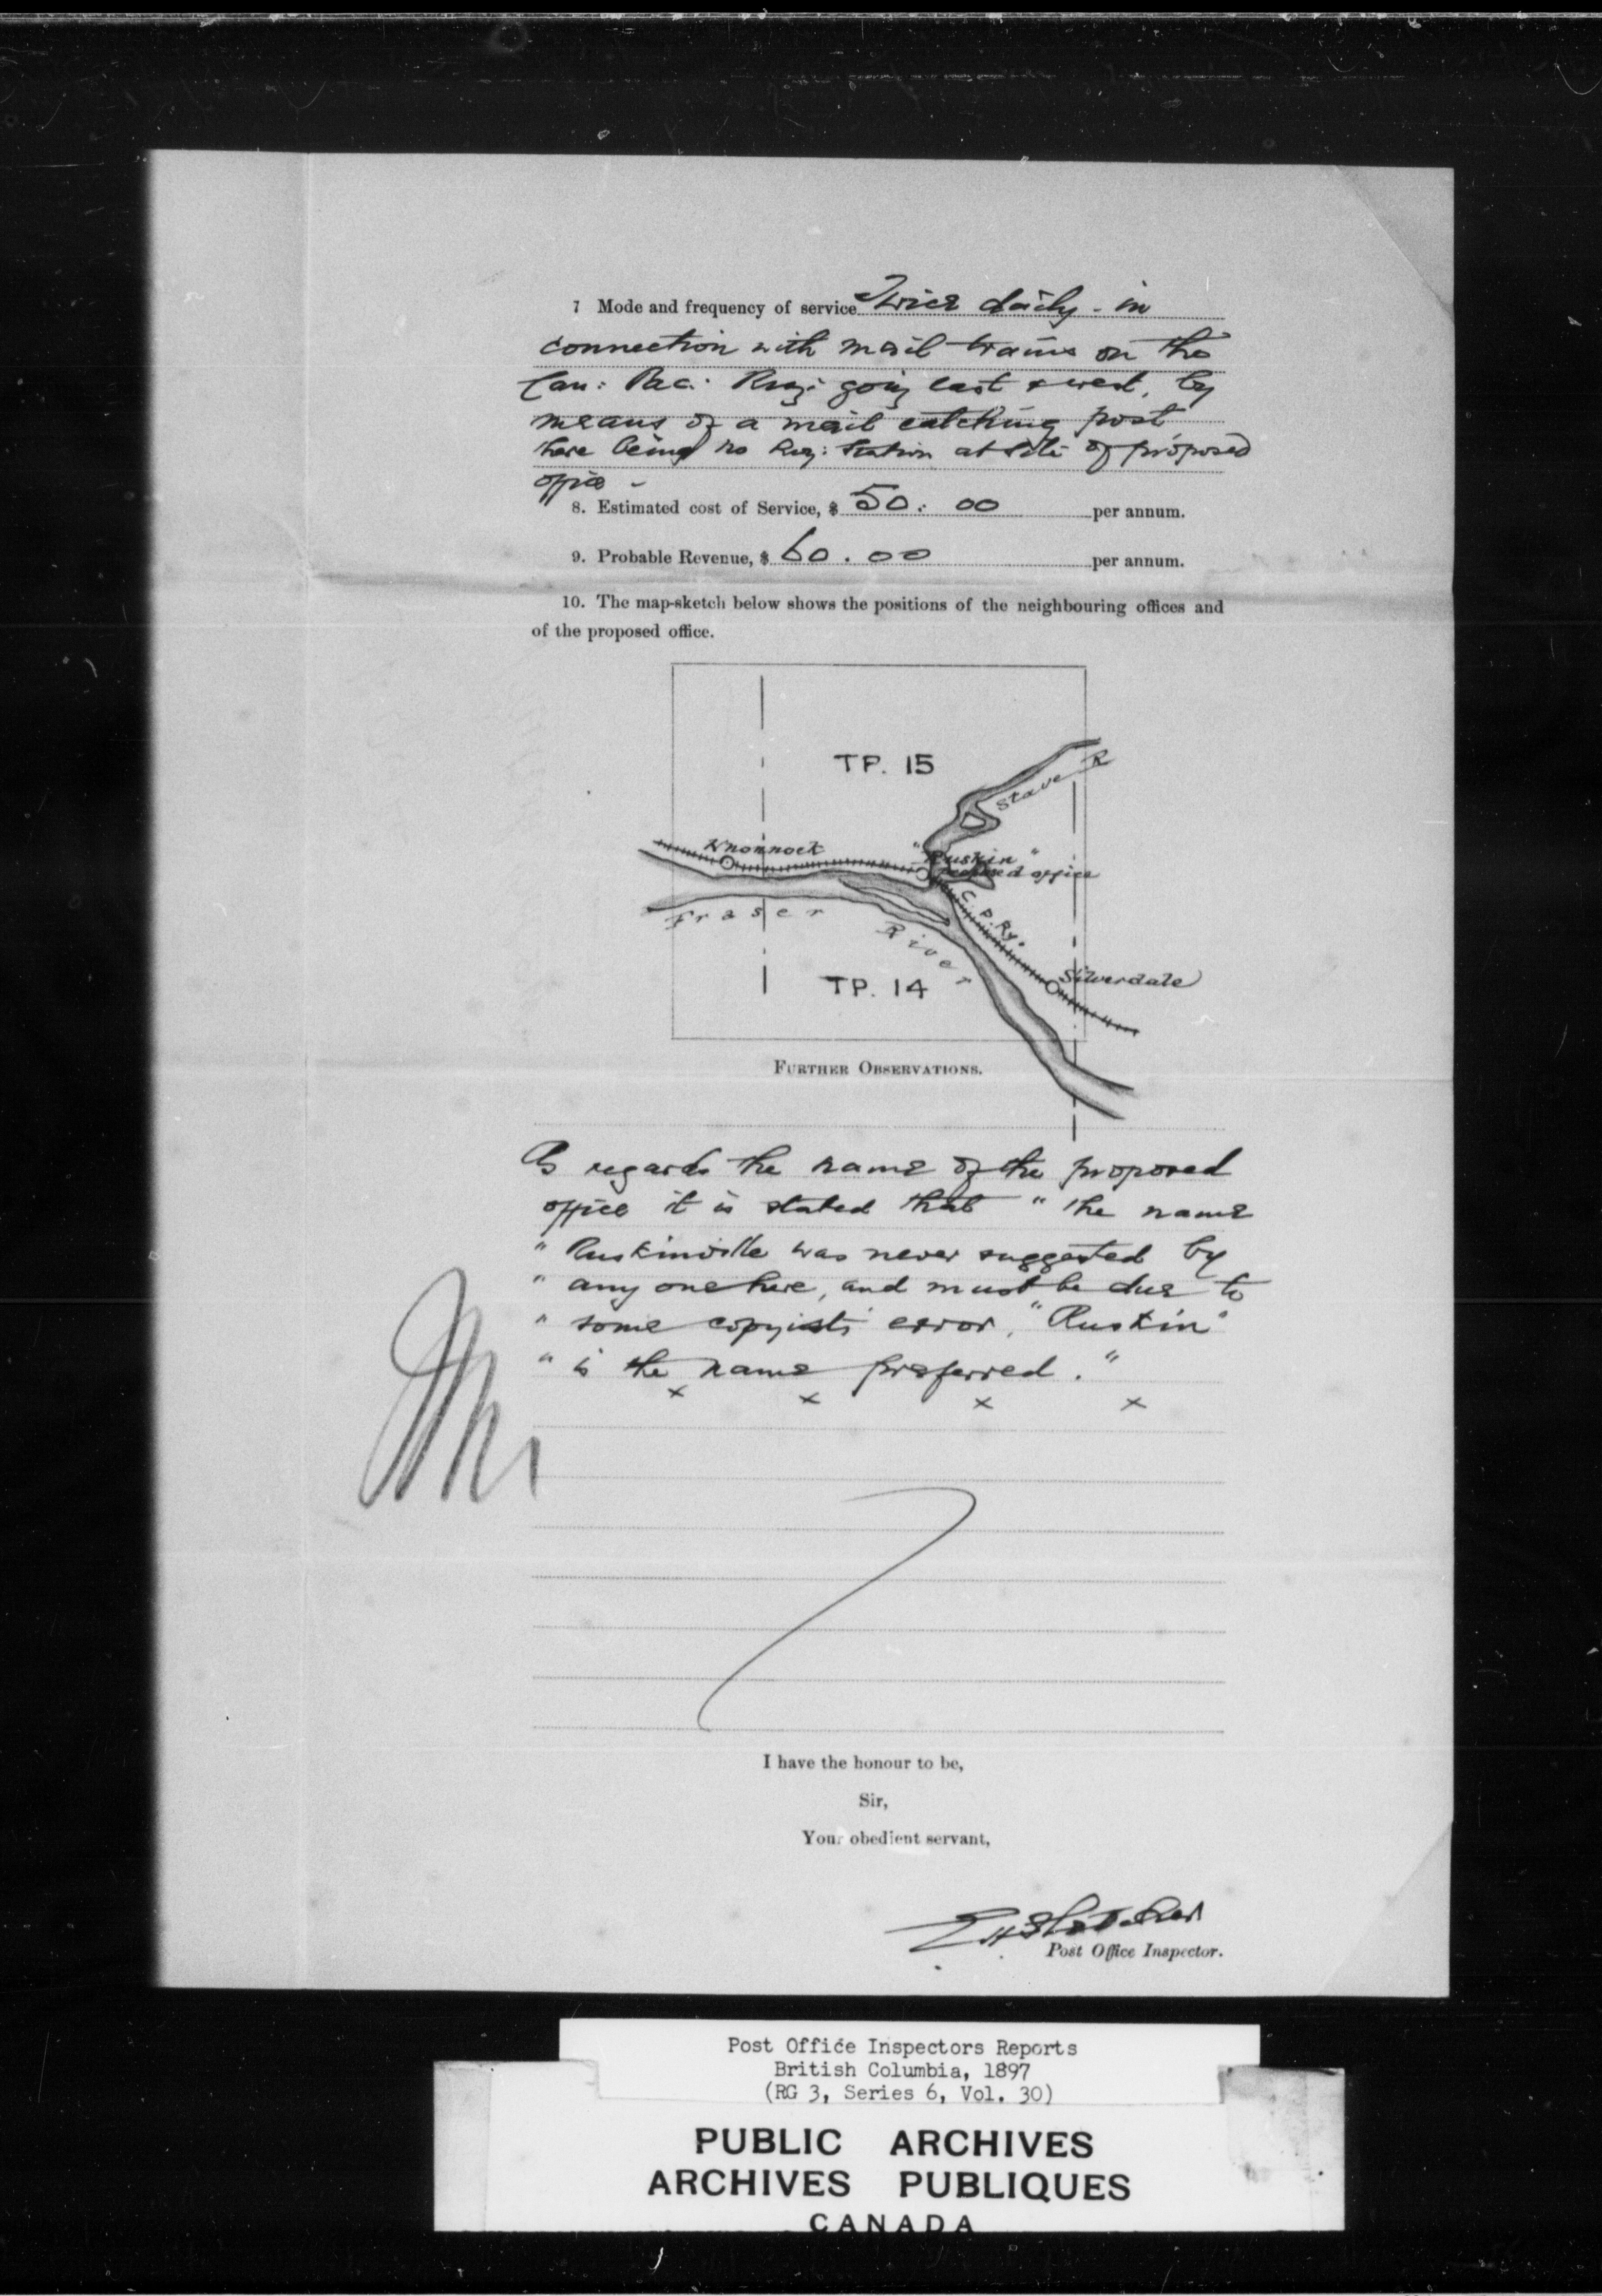 7 Mode and frequency of service Twice daily - in
connection with mail trains on the
Can: Pac: Rwy: going east & west, by
means of a mail catching post
there being no Rwy: station at site of proposed
office -
8. Estimated cost of Service, $ 50. 00 per annum.
9. Probable Revenue, $ 60. 00 per annum.
10. The map-sketch below shows the positions of the neighbouring offices and
of the proposed office.
TP. 15
Stave R
Whonnock
"Ruskin"
proposed office
C. P. Ry.
Fraser River
Silverdale
TP. 14
FURTHER OBSERVATIONS.
As regards the name of the proposed
office it is stated that " the name
" Ruskinville was never suggested by
" any one here, and must be due to
" some copyists error, "Ruskin"
" is the name preferred."
x x x x
I have the honour to be,
Sir,
Your obedient servant,
Post Office Inspector.
Post Office Inspectors Reports
British Columbia, 1897
(RG 3, Series 6, Vol. 30)
PUBLIC ARCHIVES
ARCHIVES PUBLIQUES
CANADA